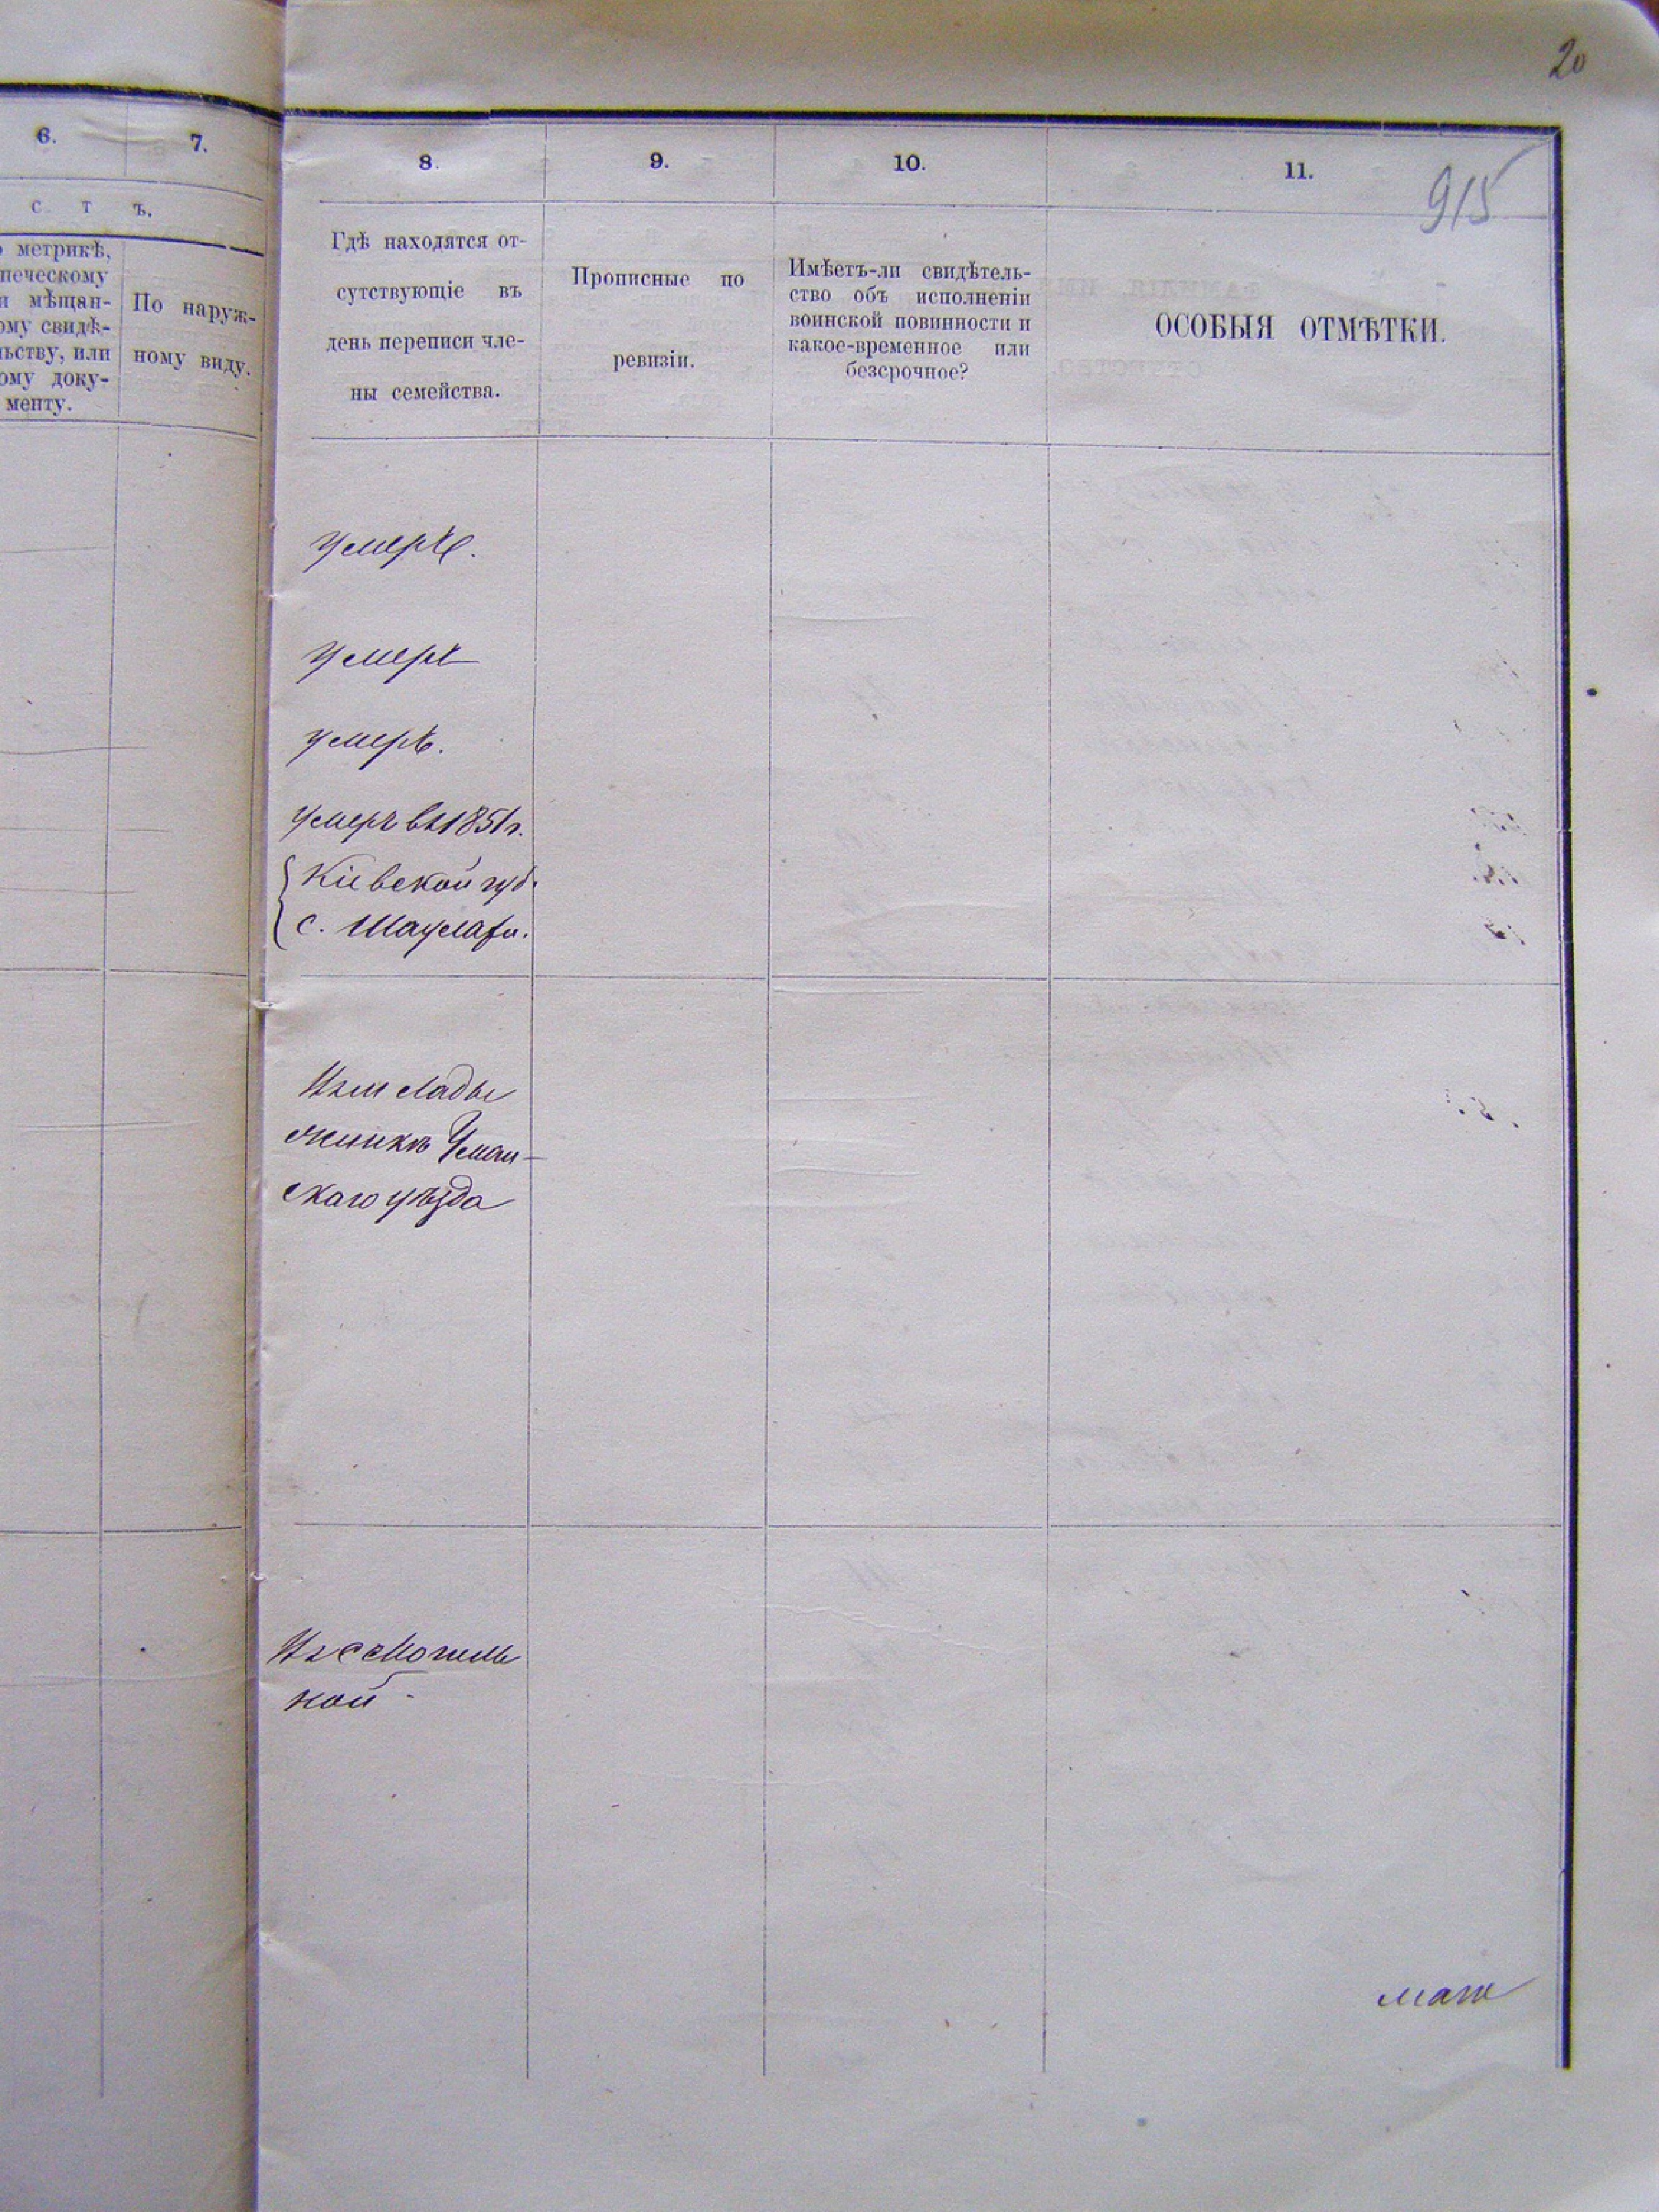 20
915
6.
7.
с т ъ.
метрикѣ,
печескому
мѣщан-
ому свидѣ-
ьству, или
ому доку-
менту.
По наруж-
ному виду.
8.
9.
10.
11.
Гдѣ находятся от-
сутствующіе въ
день переписи чле-
ны семейства.
Прописные по
ревизіи.
Имѣетъ-ли свидѣтель-
ство объ исполненіи
воинской повинности и
какое-временное или
безсрочное?
ОСОБЫЯ ОТМѢТКИ.
умеръ.
умеръ
умеръ.
умеръ въ 1851 г.
Кіевской губ.
с.
Уман-
скаго уѣзда
Изъ с Могиль
ной